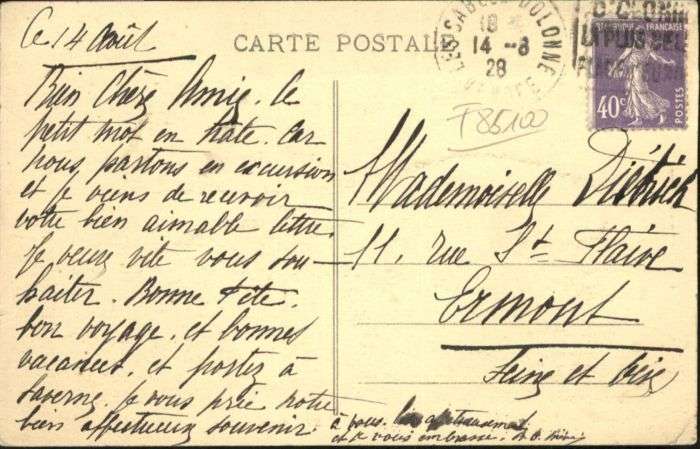 Ce 14 Août
CARTE POSTALE
LES SABLES D'OLONNE
18
14 -8
28
40c
POSTES
F85100
Bien Chère Amie. Ce
petit mot en hâte. Car
nous partons en excursion
et je viens de recevoir
votre bien aimable lettre.
Je veux vite vous sou-
haiter. Bonne Fête.
bon voyage. et bonnes
vacances. et portez à
Saverne. je vous prie notre
bien affectueux souvenir.
à vous.
et je vous embrasse.
Mademoiselle Dietrich
11. rue St Flaive
Ermont
Seine et Oise